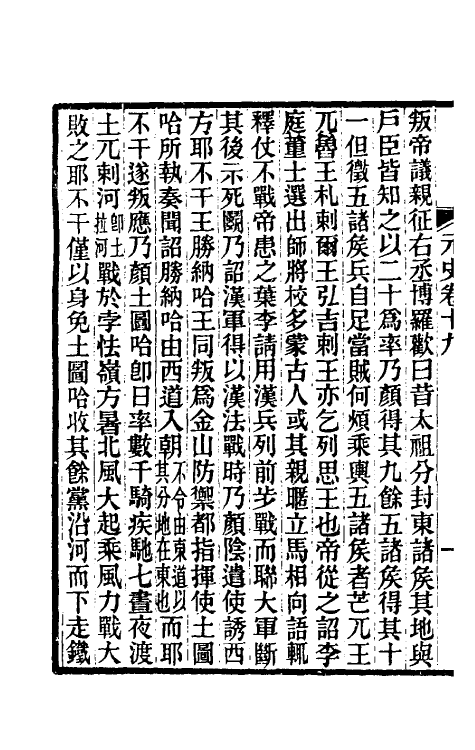 元史卷十九
一
叛帝議親征右丞博羅歡曰昔太祖分封東諸矦其地與
戶臣皆知之以二十爲率乃顏得其九餘五諸矦得其十
一但徵五諸矦兵自足當賊何煩乘輿五諸矦者芒兀王
兀魯王札剌爾王弘吉剌王亦乞列思王也帝從之詔李
庭董士選出師將校多蒙古人或其親暱立馬相向語輒
釋仗不戰帝患之葉李請用漢兵列前步戰而聯大軍斷
其後示死鬬乃詔漢軍得以漢法戰時乃顏陰遣使誘西
方耶不干王勝納哈王同叛爲金山防禦都指揮使土圖
哈所執奏聞詔勝納哈由西道入朝不令由東道以其分地在東也而耶
不干遂叛應乃顏土圖哈卽日率數千騎疾馳七晝夜渡
土兀剌河卽土拉河戰於孛怯嶺方暑北風大起乘風力戰大
敗之耶不干僅以身免土圖哈收其餘黨沿河而下走鐵